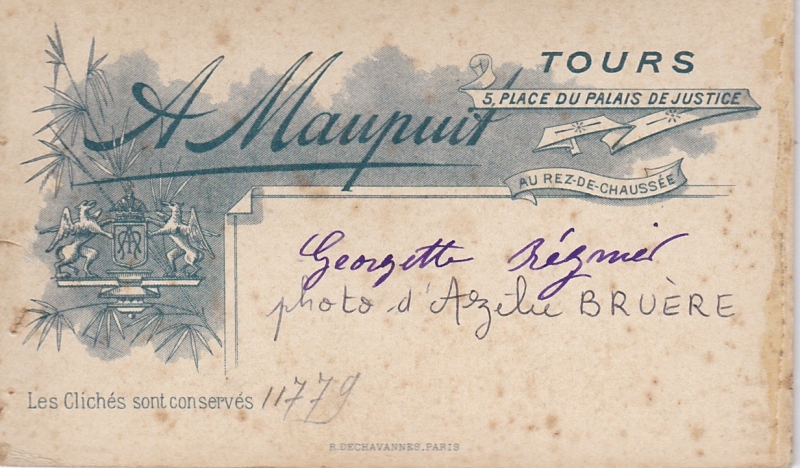 A Maupuit
TOURS
5, PLACE DU PALAIS DE JUSTICE
AU REZ-DE-CHAUSSÉE
Georgette Régnier
photo d'Azélie BRUÈRE
Les Clichés sont conservés 11779
R. DECHAVANNES, PARIS